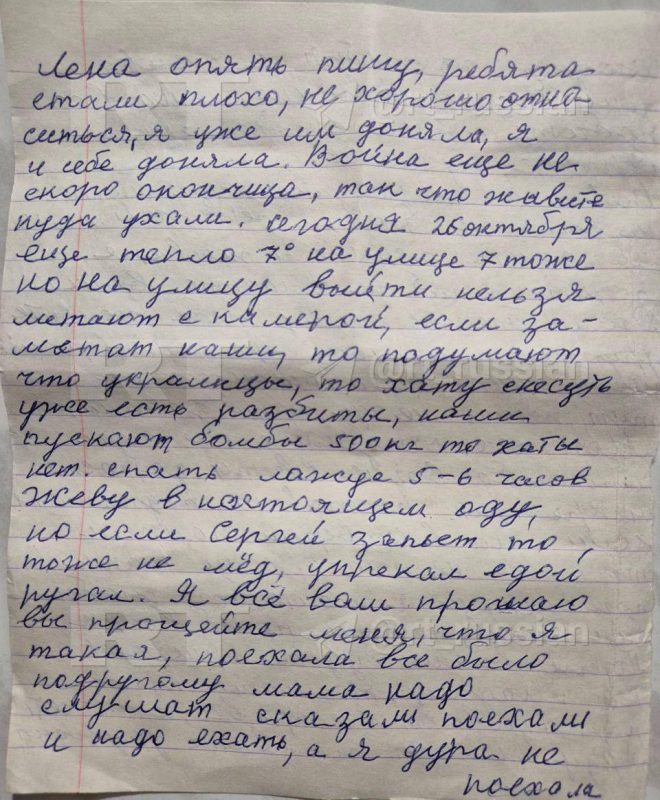 Лена опять пишу, ребята
стали плохо, не хорошо отно-
ситься, я уже им доняла, я
и себе доняла. Война еще не
скоро окончица, так что живите
куда ухали. сегодня 26 октября
еще тепло 7° на улице 7 тоже
но на улицу выйти нельзя
метают с камерой, если за-
метат наши, то подумают
что украинцы, то хату снесуть
уже есть разбиты, наши
пускают бомбы 500 кг то хаты
нет. спать лажуе 5-6 часов
Жеву в настоящем аду,
но если Сергей запьет то,
тоже не мёд, упрекал едой
ругал. Я всё вам прощаю
вы прощейте меня, что я
такая, поехала все было
подругому мама надо
слушат сказали поехали
и надо ехать, а я дура не
поехала
@rt_russian
@rt_russian
@rt_russian